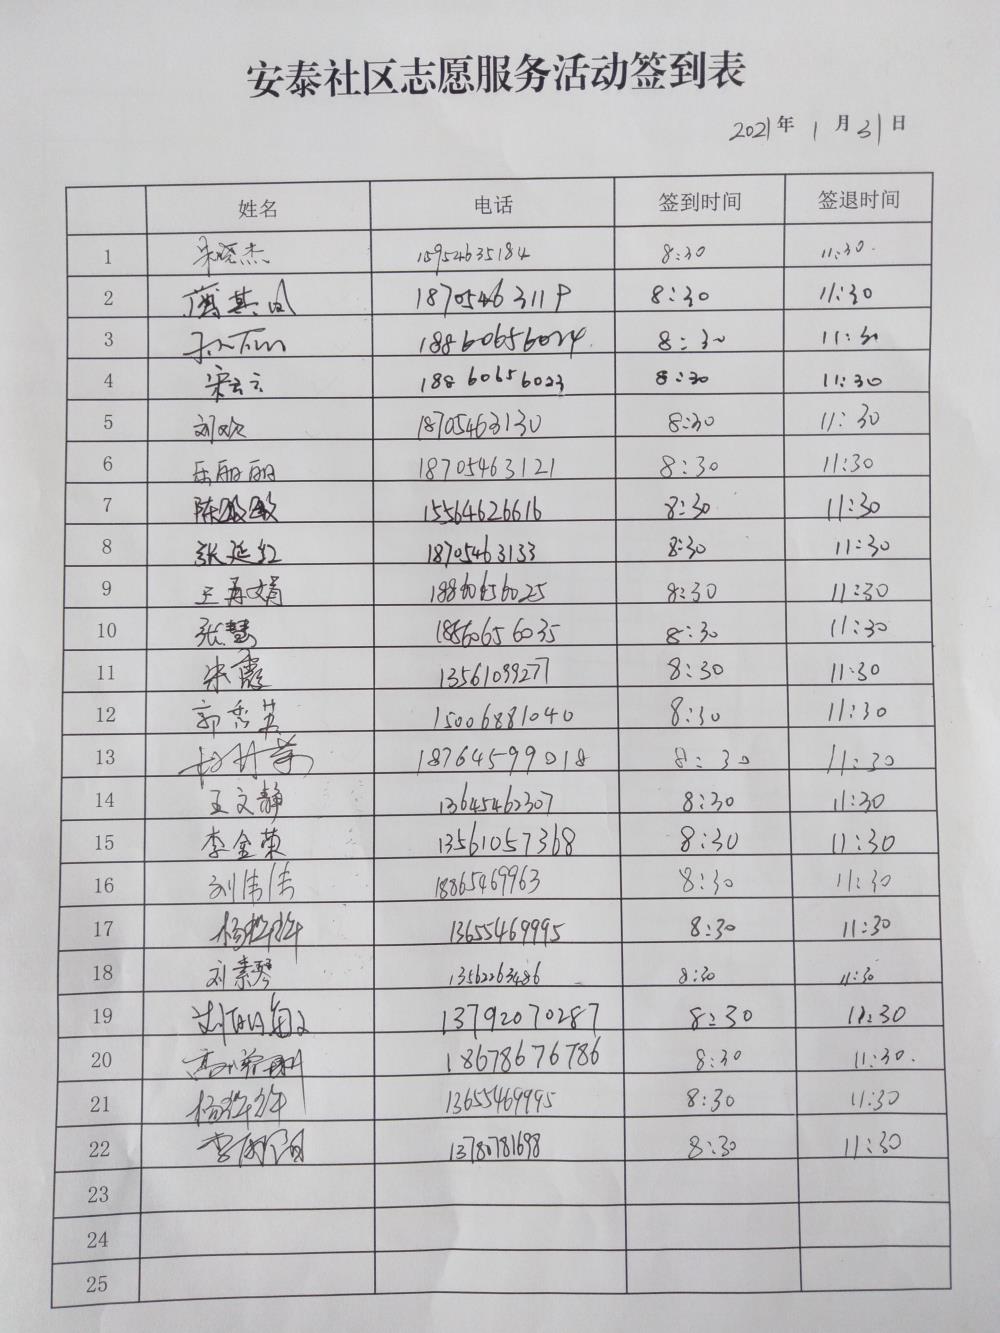 安泰社区志愿服务活动签到表
2021年 1 月 31 日
姓名 电话 签到时间 签退时间
1 朱晓杰 15954635184 8:30 11:30
2 8:30 11:30
3 18860656024 8:30 11:30
4 宋云云 18860656023 8:30 11:30
5 刘欢 18705463130 8:30 11:30
6 岳丽丽 18705463121 8:30 11:30
7 陈敏敏 15564626616 8:30 11:30
8 张延红 18705463133 8:30 11:30
9 王再娟 18860656025 8:30 11:30
10 张慧 18660656035 8:30 11:30
11 宋霞 13561099277 8:30 11:30
12 郭秀英 15006881040 8:30 11:30
13 18764599018 8:30 11:30
14 王文静 13645462307 8:30 11:30
15 李金荣 13561057368 8:30 11:30
16 刘伟伟 18865469963 8:30 11:30
17 13655469995 8:30 11:30
18 刘素琴 13562263486 8:30 11:30
19 13792070287 8:30 11:30
20 18678676786 8:30 11:30.
21 13655469995 8:30 11:30
22 13780781698 8:30 11:30
23
24
25